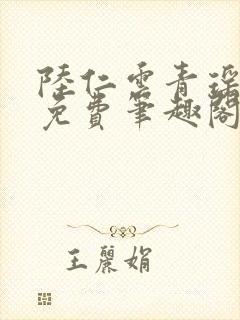 陸仁雲青瑶
免費筆趣閣
王麗娟